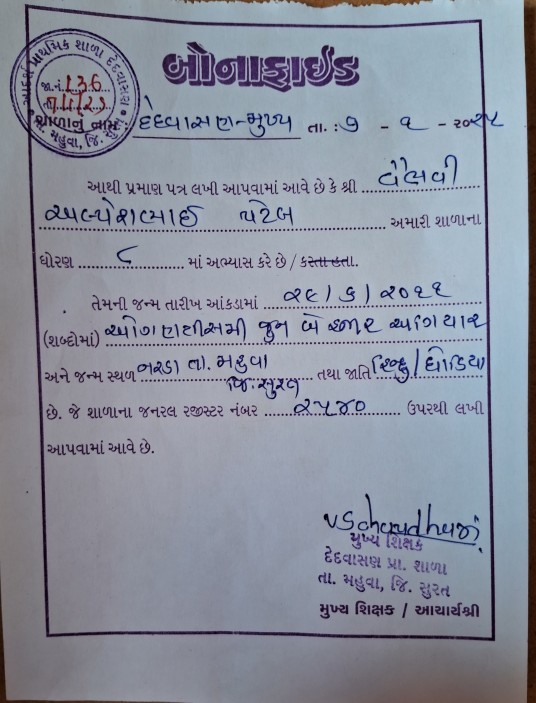 બોનાફાઈડ
આદર્શ પ્રાથમિક શાળા દેદવાસણ
જા.નં. 136
તા.
શાળાનું નામ : દેદવાસણ-મુખ્ય તા. : ૭ - ૧ - ૨૦૨૫
તા. મહુવા, જિ. સુરત
આથી પ્રમાણ પત્ર લખી આપવામાં આવે છે કે શ્રી વૈષ્ણવી
અલ્પેશભાઈ પટેલ અમારી શાળાના
ધોરણ ૮ માં અભ્યાસ કરે છે / કરતા હતા.
તેમની જન્મ તારીખ આંકડામાં ૨૯/૬/૨૦૧૧
(શબ્દોમાં) ઓગણત્રીસમી જુન બે હજાર અગિયાર
અને જન્મ સ્થળ તા. મહુવા જિ. સુરત તથા જાતિ હિન્દુ/ધોડિયા
છે. જે શાળાના જનરલ રજીસ્ટર નંબર ૨૫૪૦ ઉપરથી લખી
આપવામાં આવે છે.
VSchaudhari
મુખ્ય શિક્ષક
દેદવાસણ પ્રા. શાળા
તા. મહુવા, જિ. સુરત
મુખ્ય શિક્ષક / આચાર્યશ્રી